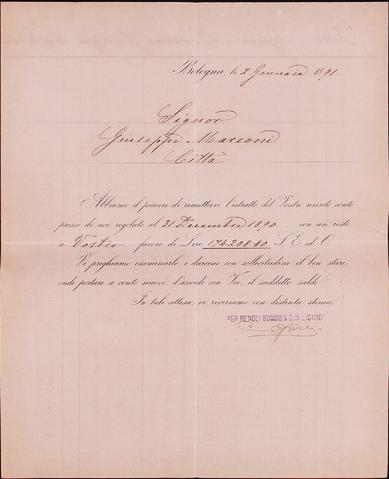 Bologna, le 2 Gennaio 1891
Signor
Giuseppe Marconi
Città
Abbiamo il piacere di rimettervi l'estratto del Vostro conto
presso di noi, regolato al 31 Decembre 1890 con un resto
a Vostro favore di Lire 176208.80 S. E. ed O.
Vi preghiamo esaminarlo, e darcene con sollecitudine il ben stare,
onde portare a conto nuovo, d'accordo con Voi, il suddetto saldo.
In tale attesa, vi riveriamo con distinta stima.
PER RENOLI BUGGIO & C. IN LIQUID.